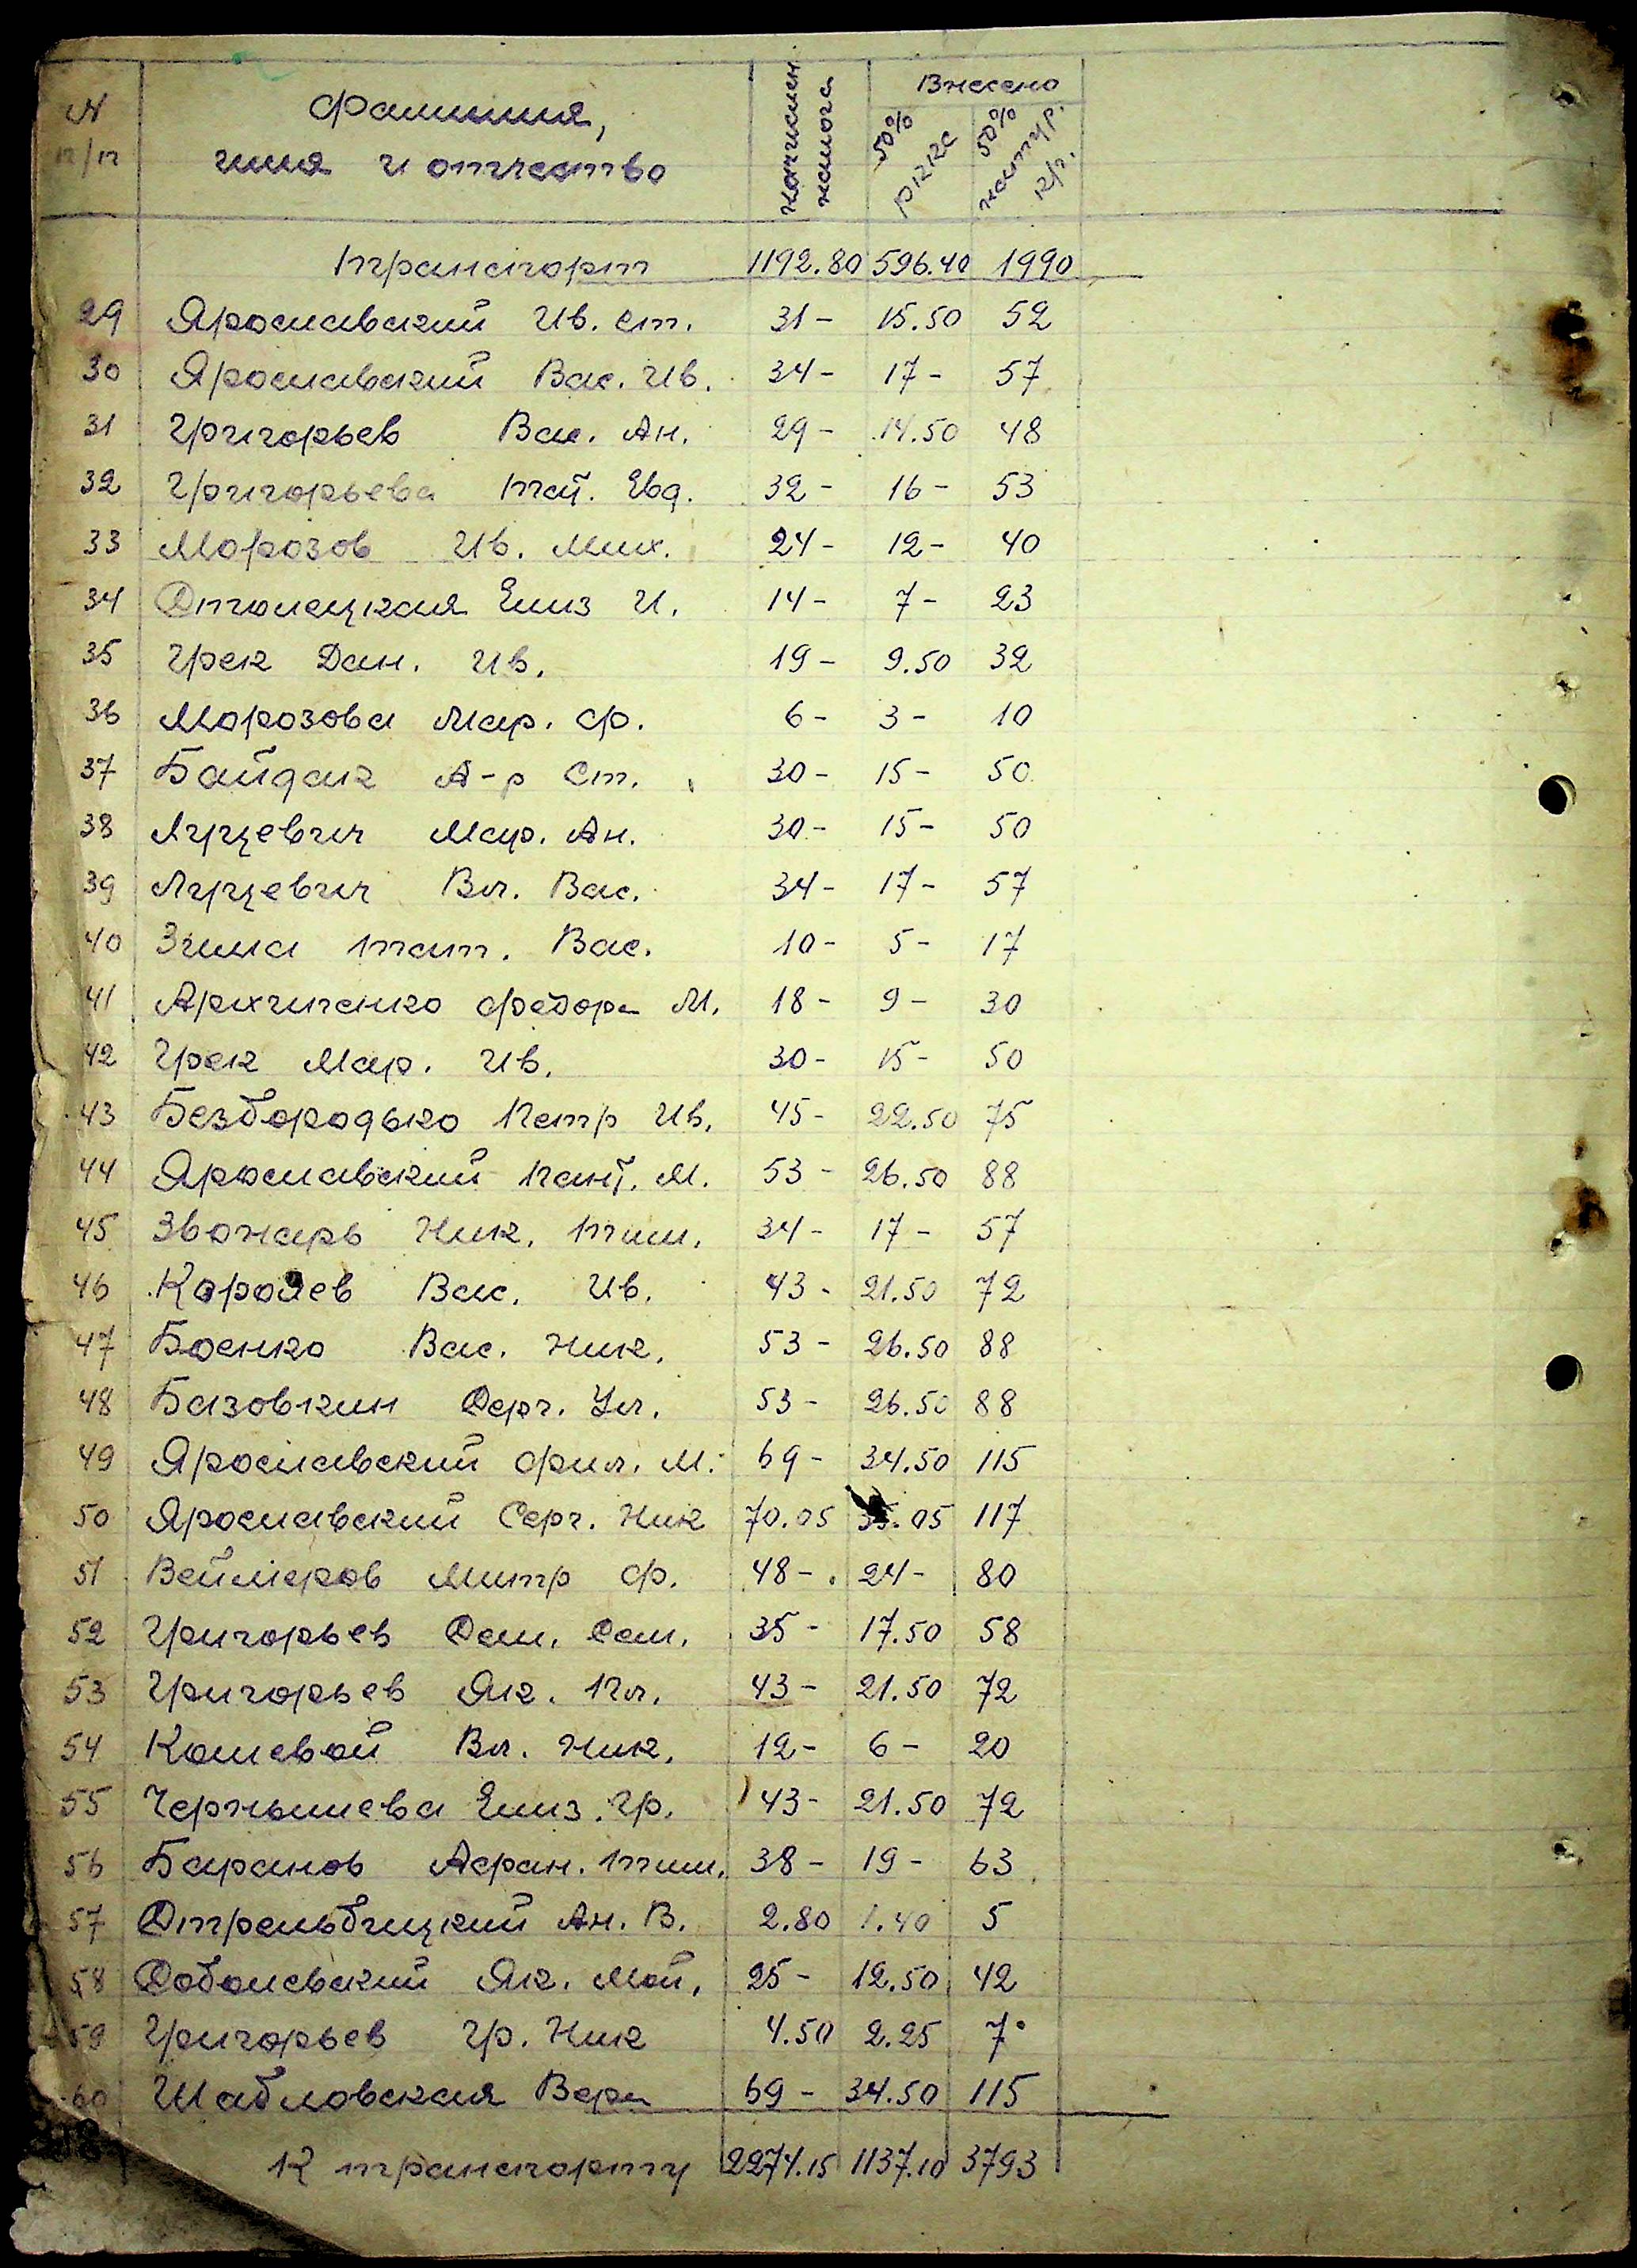 N п/п
Фамилия,
имя и отчество
начислен налога
Внесено
50% рккс
50% натур. к/р.
Транспорт 1192.80 596.40 1990
29 Ярославский Ив. Ст. 31- 15.50 52
30 Ярославский Вас. Ив. 34- 17- 57
31 Григорьев Вас. Ан. 29- 14.50 48
32 Григорьева Тат. Евд. 32- 16- 53
33 Морозов Ив. Мих. 24- 12- 40
34 Стопецкая Елиз И. 14- 7- 23
35 Грек Дан. Ив. 19- 9.50 32
36 Морозова Мар. Ф. 6- 3- 10
37 Байдак А-р Ст. 30- 15- 50
38 Луцевич Мар. Ан. 30- 15- 50
39 Луцевич Вл. Вас. 34- 17- 57
40 Зима Тат. Вас. 10- 5- 17
41 Архипенко Федора М. 18- 9- 30
42 Грек Мар. Ив. 30- 15- 50
43 Безбородько Петр Ив. 45- 22.50 75
44 Ярославский Пант. М. 53- 26.50 88
45 Звонарь Ник. Тим. 34- 17- 57
46 Королев Вас. Ив. 43- 21.50 72
47 Боенко Вас. Ник. 53- 26.50 88
48 Базовкин Серг. Ул. 53- 26.50 88
49 Ярославский Фил. М. 69- 34.50 115
50 Ярославский Серг. Ник 70.05 35.05 117
51 Веймеров Митр Ф. 48- 24- 80
52 Григорьев Сам. Сам. 35- 17.50 58
53 Григорьев Як. Пл. 43- 21.50 72
54 Кошевой Вл. Ник. 12- 6- 20
55 Чернышева Елиз. Гр. 43- 21.50 72
56 Баранов Афан. Тим. 38- 19- 63
57 Стрельбицкий Ан. В. 2.80 1.40 5
58 Соболевский Як. Мой. 25- 12.50 42
59 Григорьев Гр. Ник 4.50 2.25 7
60 Шабловская Вера 69- 34.50 115
К транспорту 2274.15 1137.10 3793